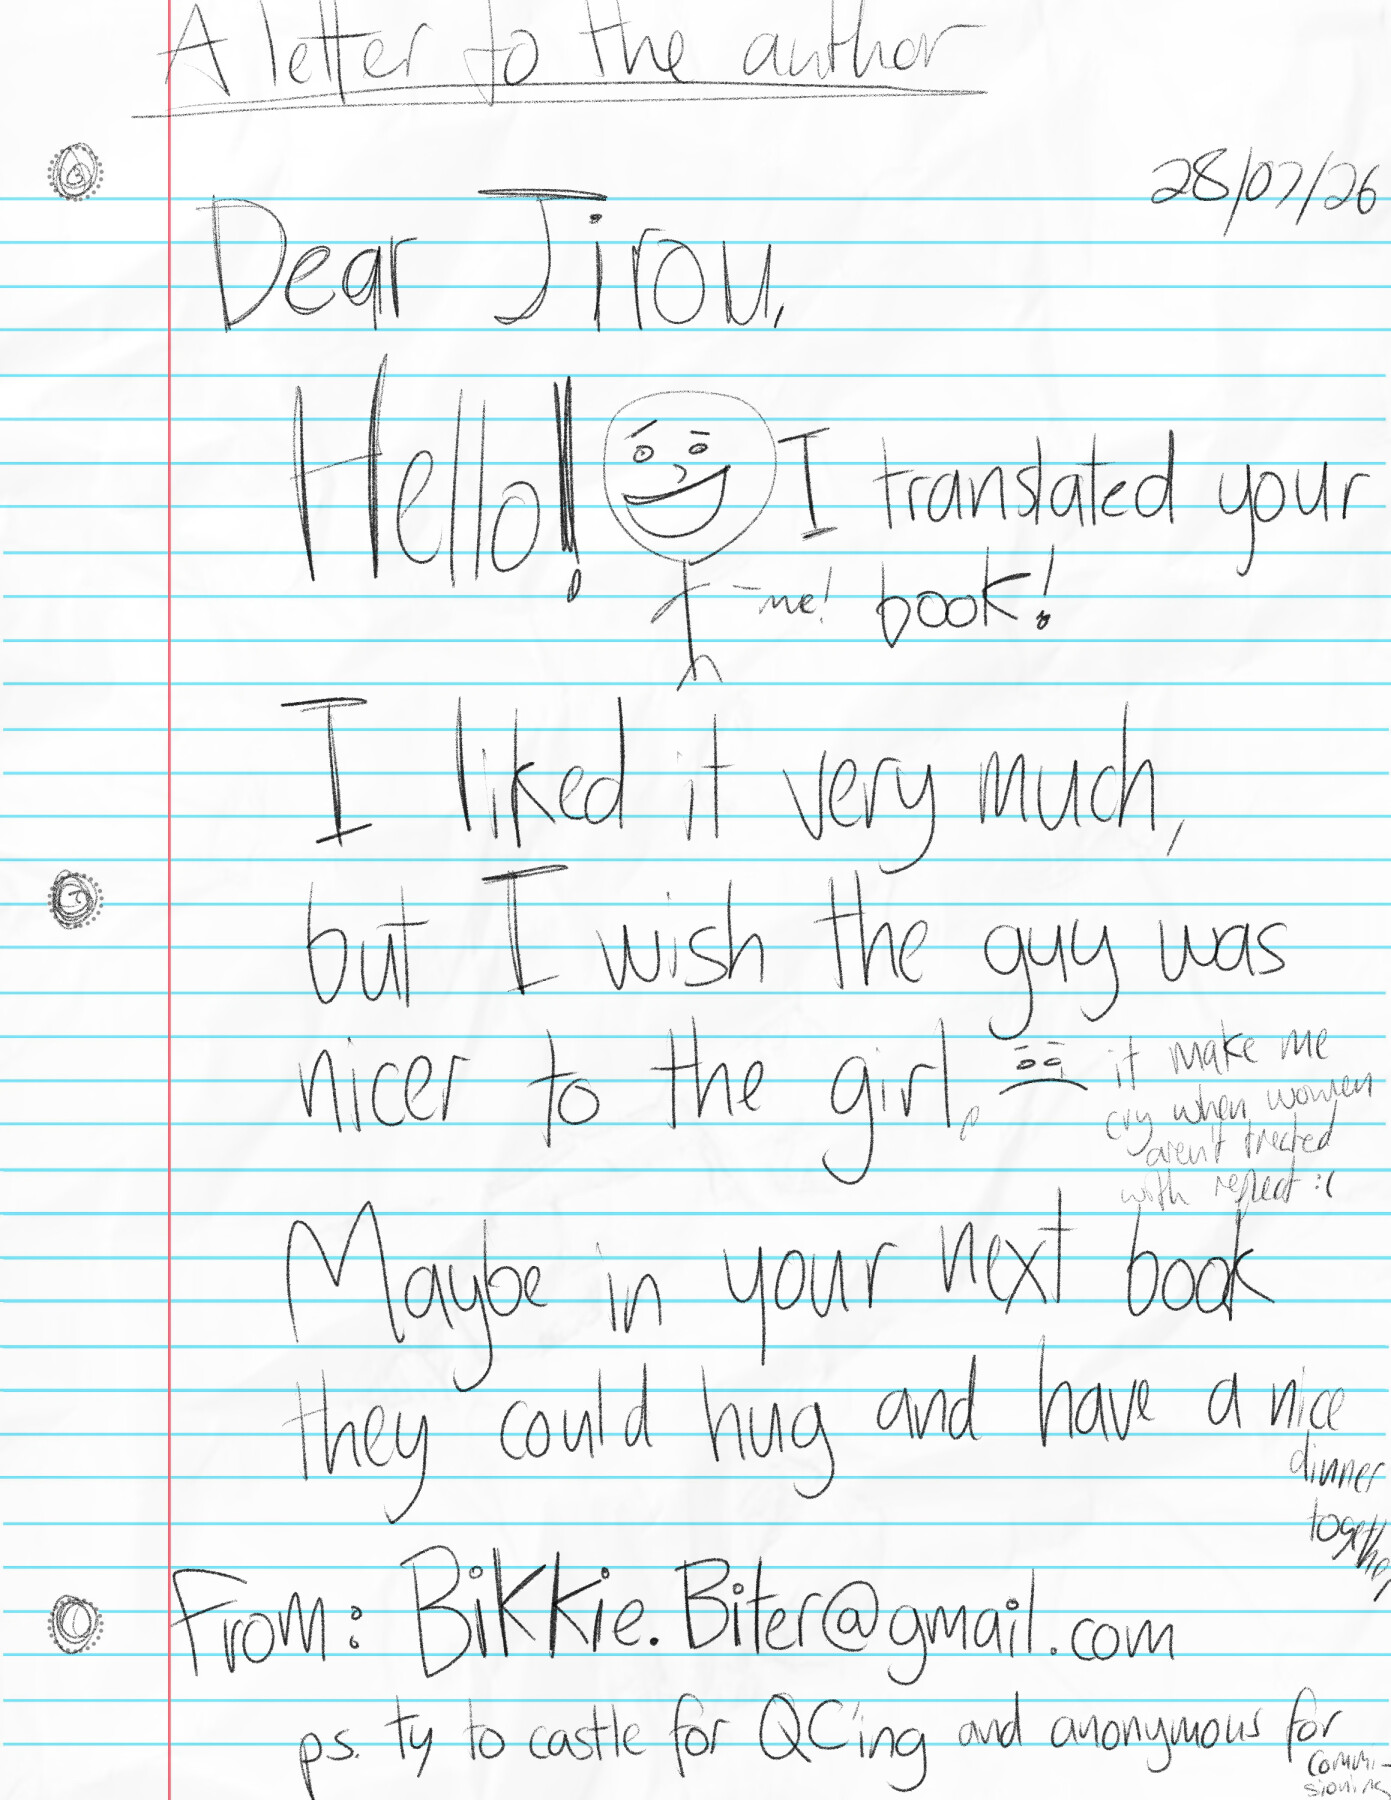 A letter to the author
28/07/26
Dear Jirou,
Hello!! I translated your
-me! book!
I liked it very much,
but I wish the guy was
nicer to the girl.
it make me
cry when women
aren't treated
with repeat :(
Maybe in your next book
they could hug and have a nice
dinner
together,
From: Bikkie.Biter@gmail.com
ps. ty to castle for QC'ing and anonymous for
commi-
sioning